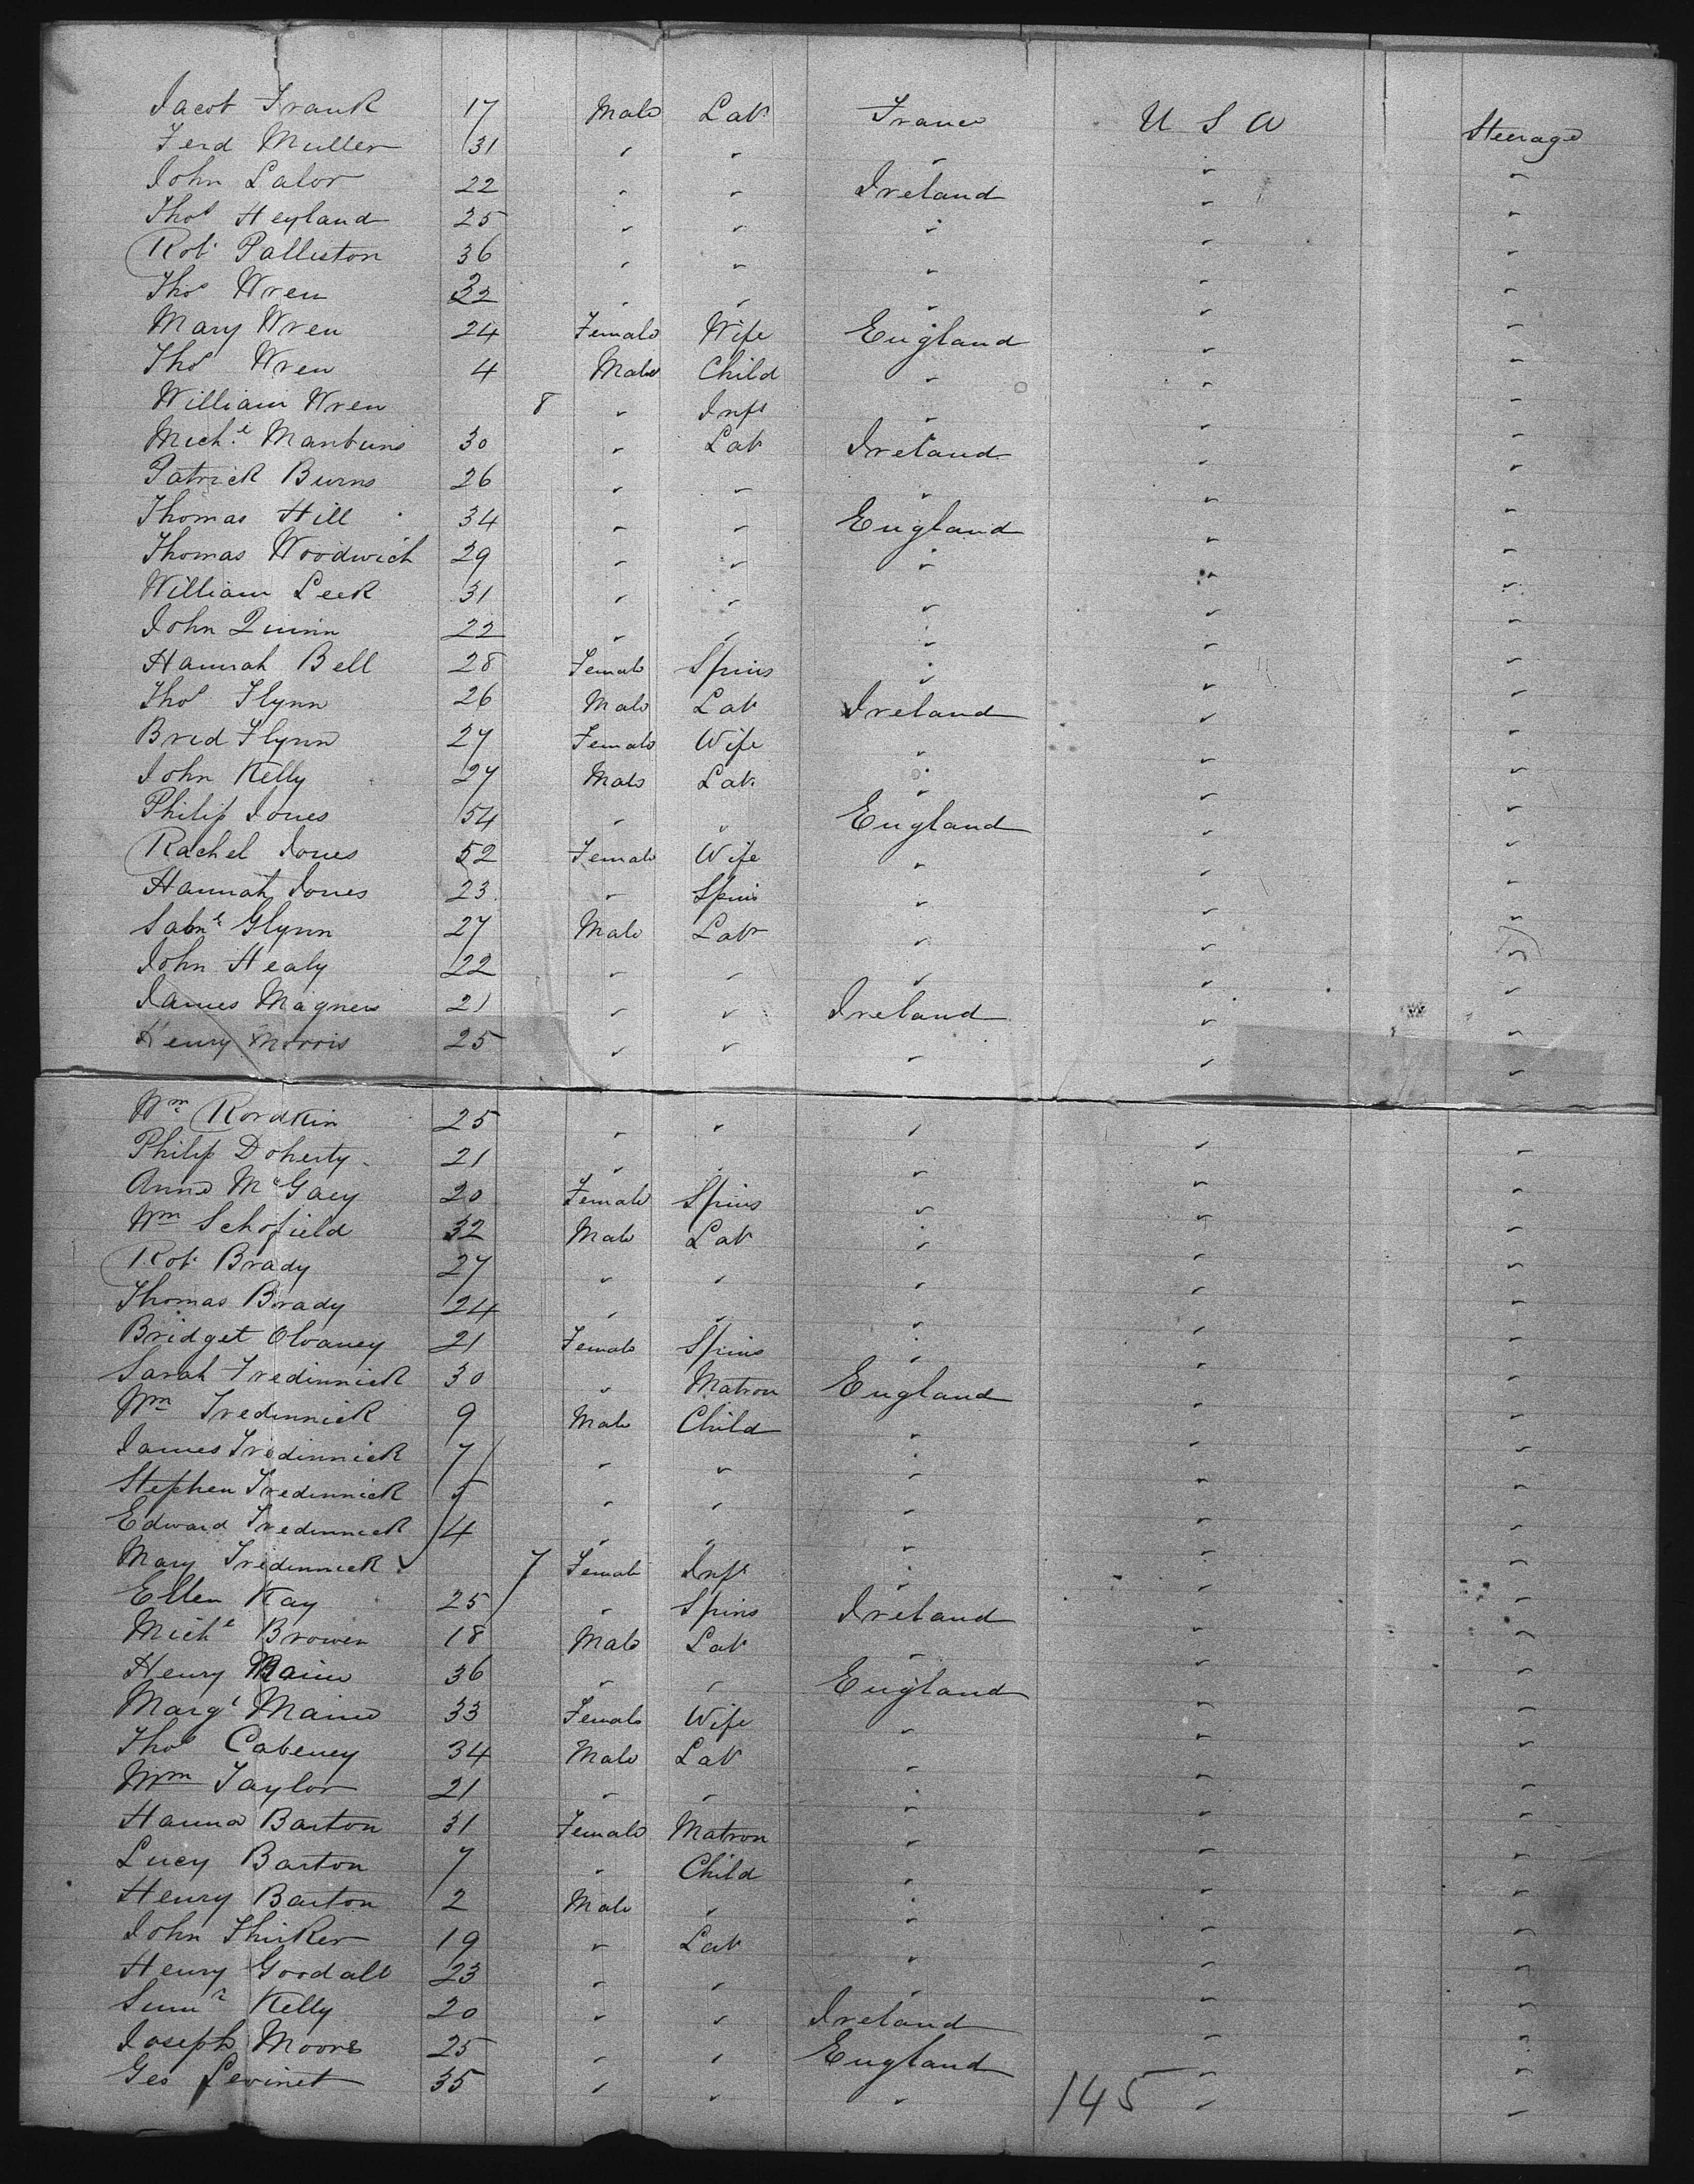 Jacob Frank 17 Male Lab France U S A Steerage
Ferd Muller 31 " " " " "
John Lalor 22 " " Ireland " "
Thos Heyland 25 " " " " "
Robt Palliston 36 " " " " "
Thos Wren 32 " " " " "
Mary Wren 24 Female Wife England " "
Thos Wren 4 Male Child " " "
William Wren 8 " Inft " " "
Michl 30 " Lab Ireland " "
Patrick Burns 26 " " " " "
Thomas Hill 34 " " England " "
Thomas Woodwich 29 " " " " "
William Leek 31 " " " " "
John Quinn 22 " " " " "
Hannah Bell 28 Female Spins " " "
Thos Flynn 26 Male Lab Ireland " "
Brid Flynn 27 Female Wife " " "
John Kelly 27 Male Lab " " "
Philip Jones 54 " " England " "
Rachel Jones 52 Female Wife " " "
Hannah Jones 23 " Spins " " "
Glynn 27 Male Lab " " "
John Healy 22 " " " " "
James Magner 21 " " Ireland " "
Henry Morris 25 " " " " "
Wm Rordkin 25 " " " " "
Philip Doherty 21 " " " " "
Anne McGaey 20 Female Spins " " "
Wm Schofield 32 Male Lab " " "
Robt Brady 27 " " " " "
Thomas Brady 24 " " " " "
Bridget 21 Female Spins " " "
Sarah Tredinnick 30 " Matron England " "
Wm Tredinnick 9 Male Child " " "
James Tredinnick 7 " " " " "
Stephen Tredinnick 5 " " " " "
Edward Tredinnick 4 " " " " "
Mary Tredinnick 7 Female Inft " " "
Ellen Kay 25 " Spins Ireland " "
Michl Browen 18 Male Lab " " "
Henry Maine 36 " " England " "
Margt Maine 33 Female Wife " " "
Thos Cabeney 34 Male Lab " " "
Wm Taylor 21 " " " " "
Hanna Barton 31 Female Matron " " "
Lucy Barton 7 " Child " " "
Henry Barton 2 Male " " " "
John Thirker 19 " Lab " " "
Henry Goodall 23 " " " " "
Kelly 20 " " Ireland " "
Joseph Moore 25 " " England " "
Geo Levinet 35 " " " 145 " "